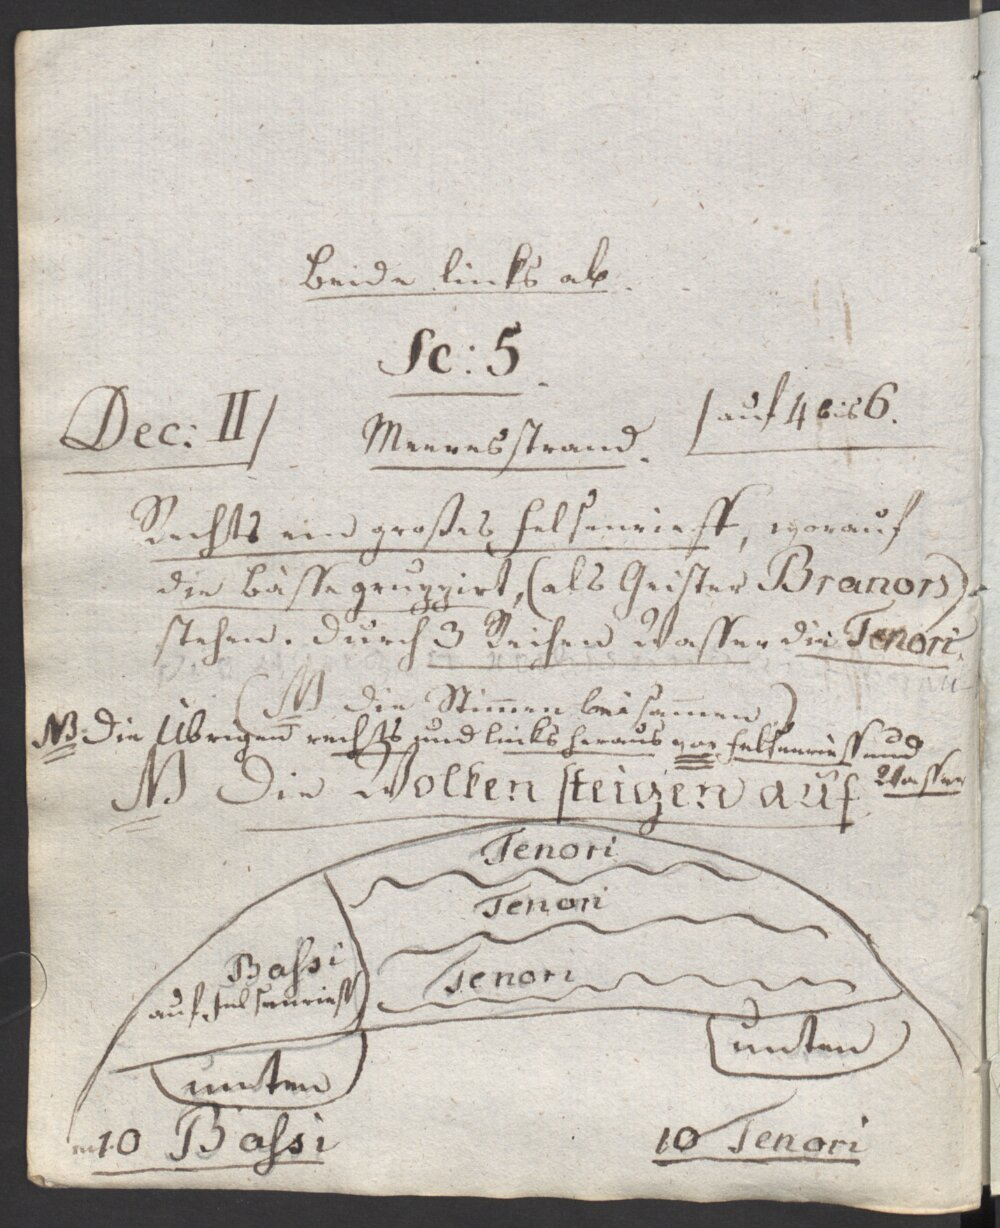 beide links ab.
Sc: 5.
Dec: II/ Meeresstrand. / auf 4 bis 6.
Rechts ein großes Felsenrieff, worauf
die Bässe gruppirt, (als Geister Branors)
stehen. durch 3 Reihen Wasser die Tenori.
(NB die Stimmen beisammen)
NB: die Übrigen rechts und links heraus vor Felsenrieff und Wasser
NB Die Wolken steigen auf
Tenori
Tenori
Bassi
auf Felsenrieff
Tenori
unten
unten
10 Bassi
10 Tenori